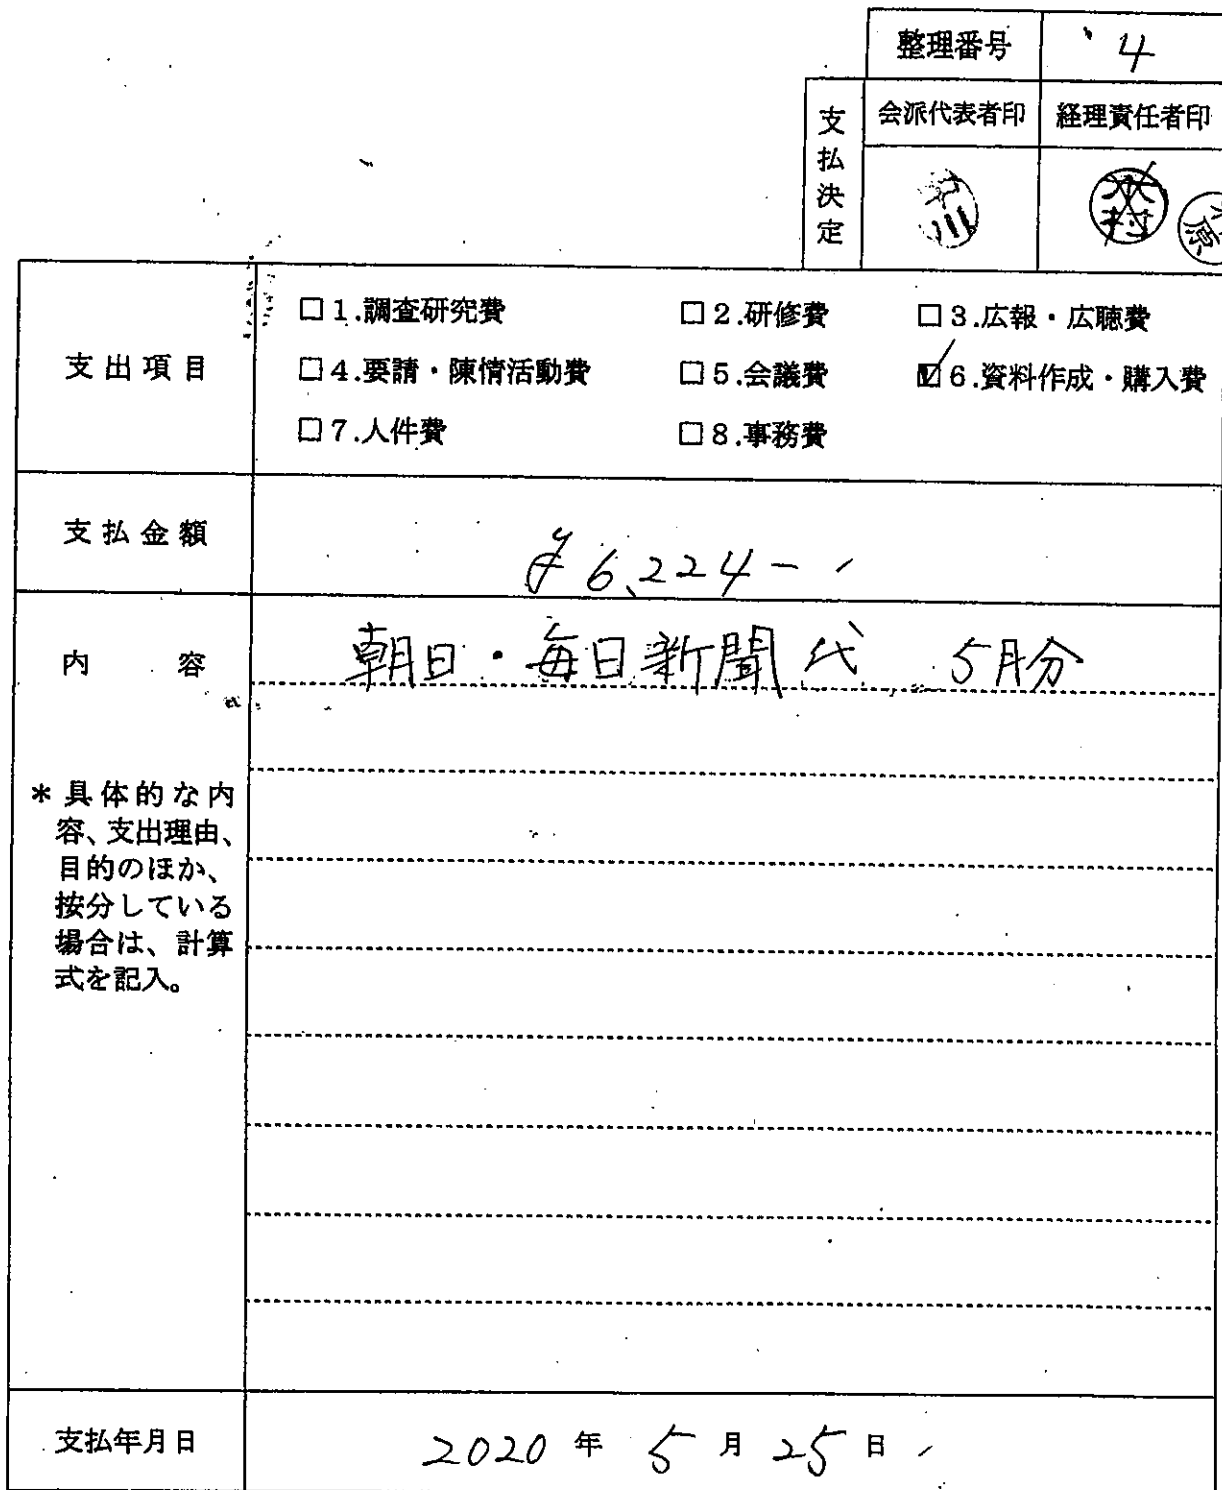 整理番号 4
支払決定
会派代表者印 経理責任者印
村
原
支出項目
□1.調査研究費 □2.研修費 □3.広報・広聴費
□4.要請・陳情活動費 □5.会議費 ☑6.資料作成・購入費
□7.人件費 □8.事務費
支払金額
¥6,224-
内容
朝日・毎日新聞代 5月分
*具体的な内
容、支出理由、
目的のほか、
按分している
場合は、計算
式を記入。
支払年月日
2020年5月25日